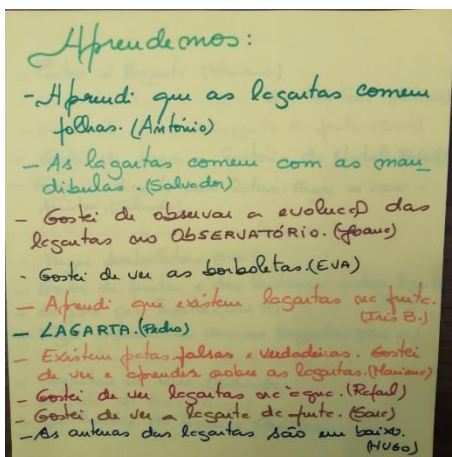 Aprendemos:
- Aprendi que as lagartas comem
folhas. (António)
- As lagartas comem com as man_
dibulas. (Salvador)
- Gostei de observar a evolução das
lagartas no OBSERVATÓRIO. (Joana)
- Gostei de ver as borboletas. (EVA)
- Aprendi que existem lagartas na fruta.
(Iris B.)
- LAGARTA. (Pedro)
- Existem patas falsas e verdadeiras. Gostei
de ver e aprender sobre as lagartas. (Mariana)
- Gostei de ver lagartas na água. (Rafael)
- Gostei de ver a lagarta da fruta. (Sara)
- As antenas das lagartas são em baixo.
(HUGO)